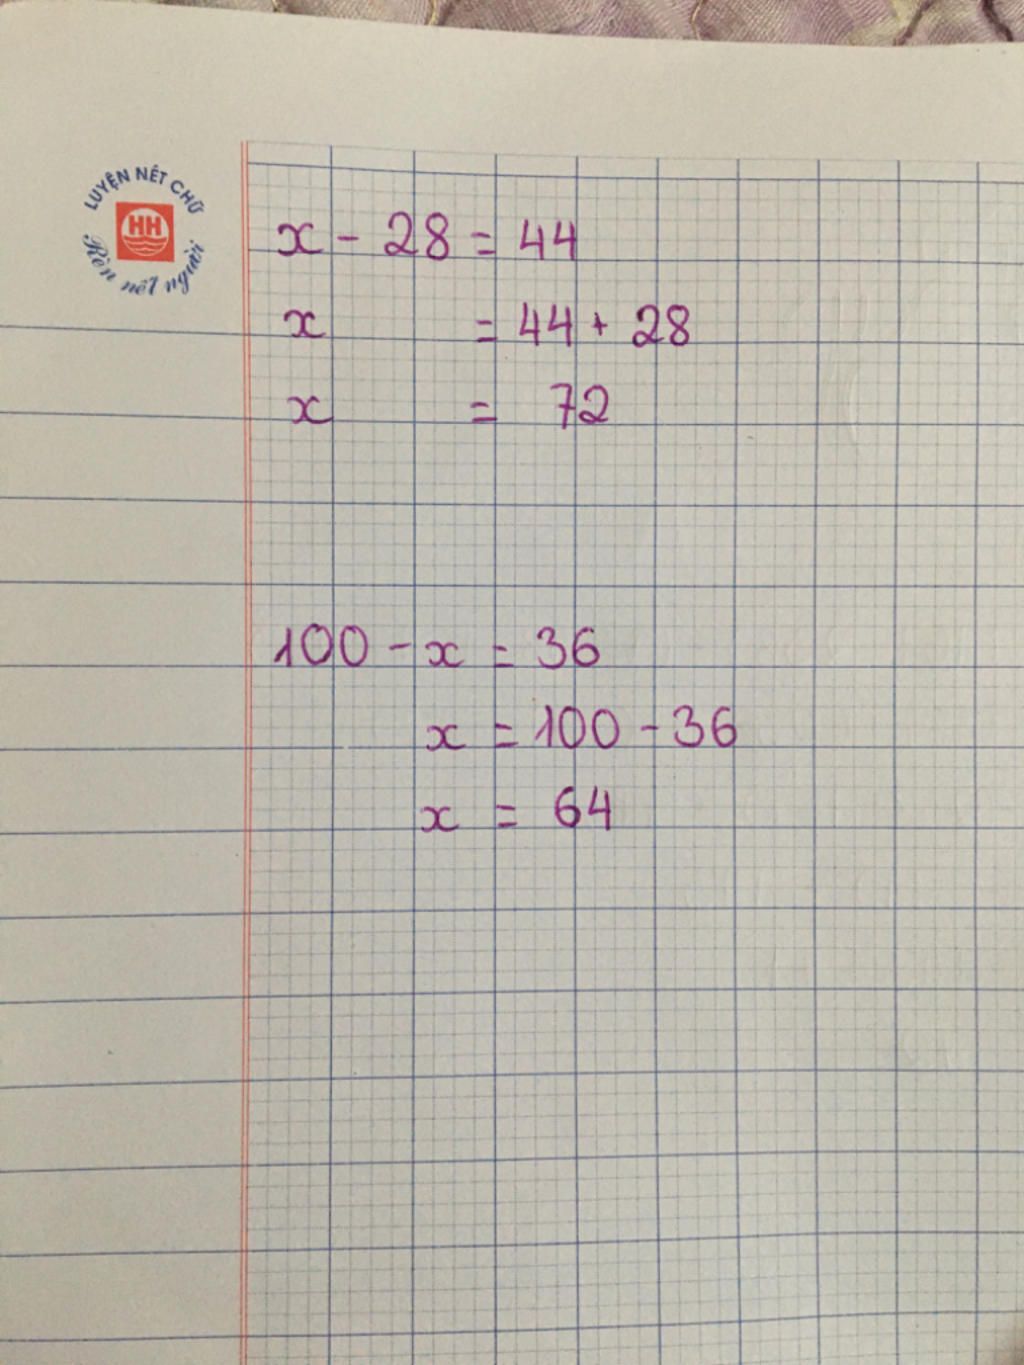 LUYỆN NÉT CHỮ
HH
Rèn nết người
x - 28 = 44
x = 44 + 28
x = 72
100 - x = 36
x = 100 - 36
x = 64